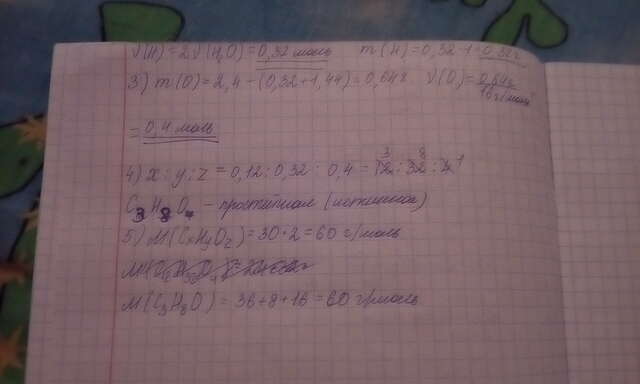 ν(H) = 2ν(H₂O) = 0,32 моль m(H) = 0,32·1 = 0,32г
3) m(O) = 2,4 − (0,32 + 1,44) = 0,64г ν(O) = 0,64г / 16 г/моль
= 0,4 моль
4) x : y : z = 0,12 : 0,32 : 0,4 = 12 : 32 : 4 3 8 1
C₃H₈O – простейшая (истинная)
5) M(CxHyOz) = 30·2 = 60 г/моль
M(C₃H₈O) = 36+8+16 = 60 г/моль